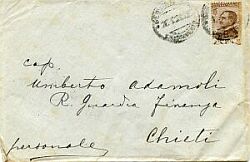 cap.
Umberto Adamoli
R. Guardia Finanza
Chieti
personale